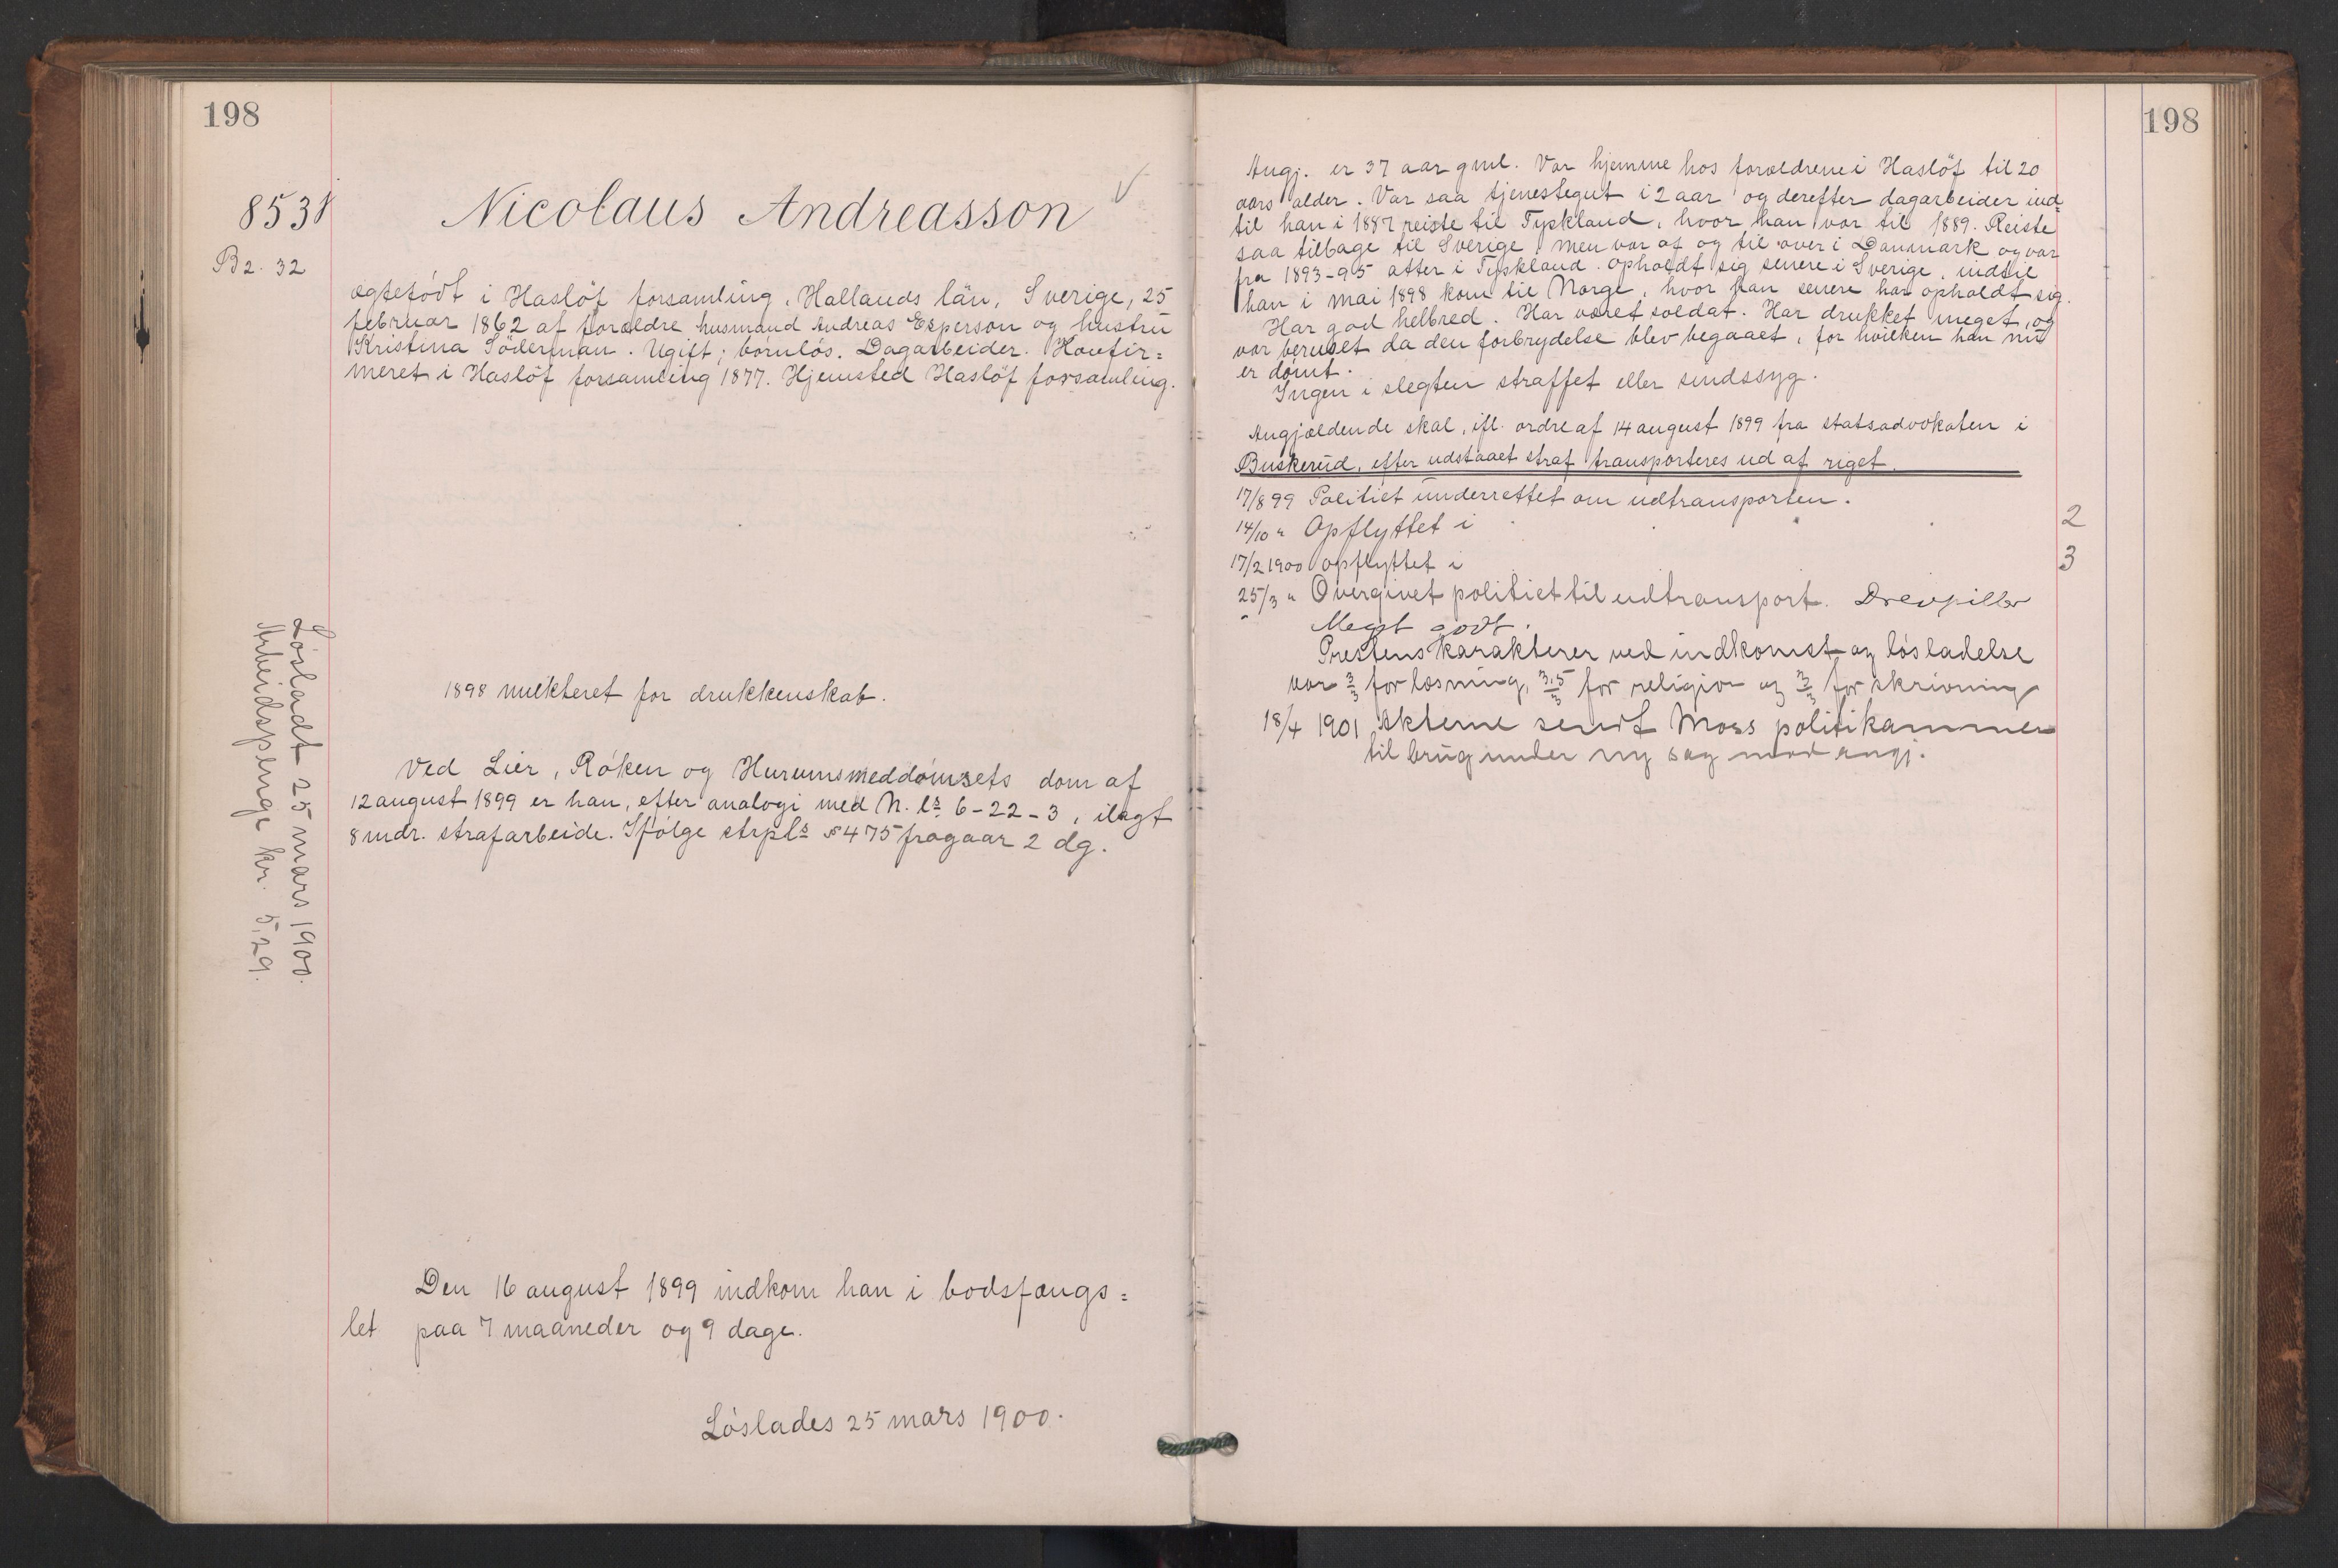 198
8531
B2. 32
Nicolaus Andreasson
ægtefödt i Haslöf forsamling, Hallands län, Sverige, 25
februar 1862 af forældre husmand Andreas Esperson og hustru
Kristina Söderman. Ugift; börnlös. Dagarbeider. Konfir=
meret i Haslöf forsamling 1877. Hjemsted Haslöf forsamling.
1898 mulkteret for drukkenskab.
Ved Lier, Röken og Hurumsmeddomsrets dom af
12 august 1899 er han, efter analogi med N. ls. 6-22-3, ilagt
8 mdr. strafarbeide. Ifölge strpls § 475 fragaar 2 dg.
Lösladt 25 mars 1900.
Arbeidspenge kr. 5,29.
Den 16 august 1899 indkom han i bodsfængs=
let paa 7 maaneder og 9 dage.
Löslades 25 mars 1900.
198
Angj. er 37 aar gml. Var hjemme hos forældrene i Haslöf til 20
aars alder. Var saa tjenestegut i 2 aar og derefter dagarbeider ind=
til han i 1887 reiste til Tyskland, hvor han var til 1889. Reiste
saa tilbage til Sverige, men var af og til over i Danmark og var
fra 1893-95 atter i Tyskland. Opholdt sig senere i Sverige, indtil
han i mai 1898 kom til Norge, hvor han senere har opholdt sig.
Har god helbred. Har været soldat. Har drukket meget, og
var beruset da den forbrydelse blev begaaet, for hvilken han nu
er dömt.
Ingen i slegten straffet eller sindssyg.
Angjældende skal, ifl. ordre af 14 august 1899 fra statsadvokaten i
Buskerud, efter udstaaet straf transporteres ud af riget.
17/8 99 Politiet underrettet om udtransporten.
14/10 " Opflyttet i 2
17/2 1900 opflyttet i 3
25/3 " Overgivet politiet til udtransport. Drevpiller
Meget godt.
Prestens karakterer ved indkomst og lösladelse
var 3/3 for læsning, 3,5/3 for religion og 3/3 for skrivning
18/4 1901 Akterne sendt Moss politikammer
til brug under ny sag mod angj.